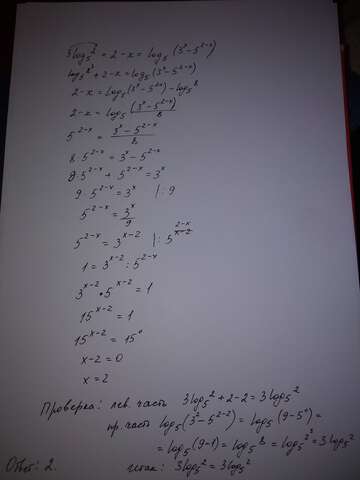 3log₅2 = 2-x = log₅(3ˣ-5²⁻ˣ)
log₅2³+2-x=log₅(3ˣ-5²⁻ˣ)
2-x=log₅(3ˣ-5²⁻ˣ)-log₅8
2-x=log₅ (3ˣ-5²⁻ˣ)/8
5²⁻ˣ = (3ˣ-5²⁻ˣ)/8
8·5²⁻ˣ = 3ˣ-5²⁻ˣ
8·5²⁻ˣ+5²⁻ˣ=3ˣ
9·5²⁻ˣ=3ˣ |:9
5²⁻ˣ=3ˣ/9
5²⁻ˣ=3ˣ⁻² |:5²⁻ˣ
1=3ˣ⁻²:5²⁻ˣ
3ˣ⁻²·5ˣ⁻²=1
15ˣ⁻²=1
15ˣ⁻²=15⁰
x-2=0
x=2
Проверка: лев. часть 3log₅2+2-2=3log₅2
пр. часть log₅(3²-5²⁻²)=log₅(9-5⁰)=
=log₅(9-1)=log₅8=log₅2³=3log₅2
Ответ: 2. итак: 3log₅2=3log₅2